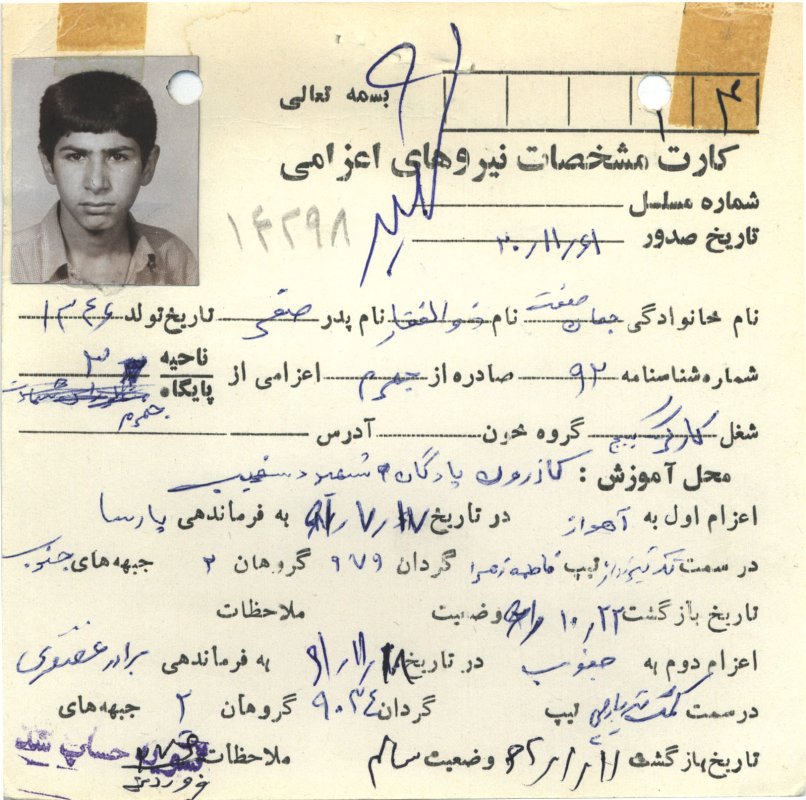 بسمه تعالی
۳ ۱
کارت مشخصات نیروهای اعزامی
شماره مسلسل
تاریخ صدور ۶۱/۱۱/۲۰
۱۴۲۹۸
نام خانوادگی صفت نام ذوالفقار نام پدر صفی تاریخ تولد ۱۳۴۶
شماره شناسنامه ۹۲ صادره از جهرم اعزامی از ناحیه ۳
پایگاه
جهرم
شغل کارگر گروه خون آدرس
محل آموزش : کازرون پادگان شهید دستغیب
اعزام اول به آهواز در تاریخ ۶۱/۷/۱۷ به فرماندهی پارسا
در سمت تک تیرانداز تیپ فاطمه زهرا گردان ۹۷۹ گروهان ۲ جبهه‌های جنوب
تاریخ بازگشت ۲۲/۱۰/۶۱ وضعیت ملاحظات
اعزام دوم به جنوب در تاریخ ۶۱/۱۱/۱۸ به فرماندهی برادر غضنفری
در سمت کمک تیپ گردان ۹۰۳۴ گروهان ۲ جبهه‌های
تاریخ بازگشت ۶۲/۱/۱۷ وضعیت سالم ملاحظات
حساب شد
فروردین